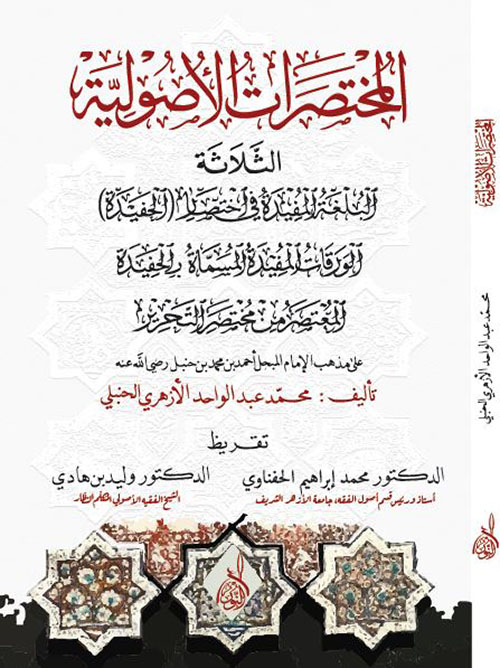 المختصرات الأصولية
الثَّلَاثَة
البُلغَة المُفِيدَة في اختصار (الحَفِيدَة)
الوَرَقَات المُفِيدَة المُسَمَّاة بالحَفِيدَة
المُعْتَصَر من مُختَصَر التَّحرِير
على مذهب الإمام المبجل أحمد بن محمد بن حنبل رضي الله عنه
تأليف: محمّد عبد الواحد الأزهري الحنبلي
تقريظ
الدكتور محمد إبراهيم الحفناوي
أستاذ ورئيس قسم أصول الفقه، جامعة الأزهر الشريف
الدكتور وليد بن هادي
الشيخ الفقيه الأصولي المتكلم النظار
المختصرات الأصولية
محمّد عبد الواحد الأزهري الحنبلي